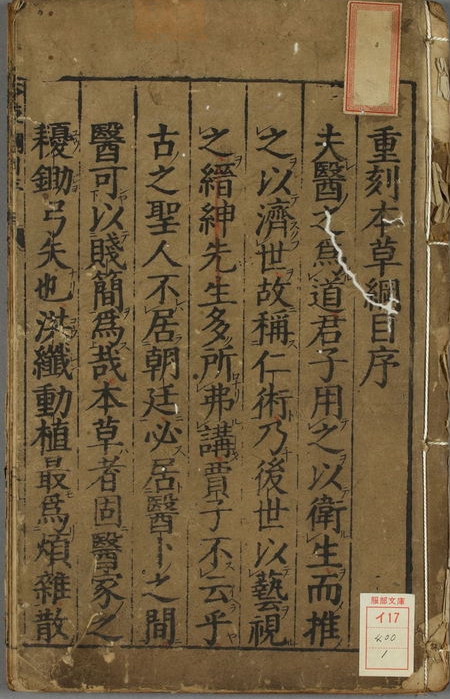 重刻本草綱目序
夫醫之為道君子用之以衛生而推
之以濟世故稱仁術乃後世以藝視
之縉紳先生多所弗講賈子不云乎
古之聖人不居朝廷必居醫卜之間
醫可以賤簡為哉本草者固醫家之
耰鋤弓矢也洪纖動植最為煩雜散
服部文庫
イ17
400
1